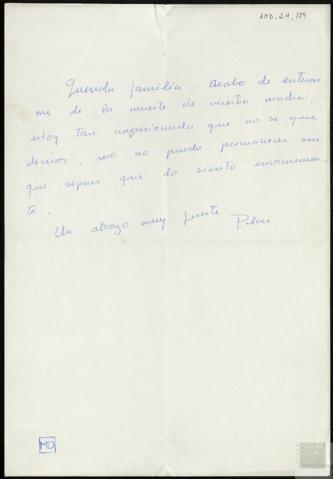 AMD, 24, 129
Querida familia: acabo de enterar
me de la muerte de vuestra madre.
estoy tan impresionada que no se que
deciros, pero no puedo permanecer sin
que sepais que lo siento enormemen
te.
Un abrazo muy fuerte
Pilar
MD